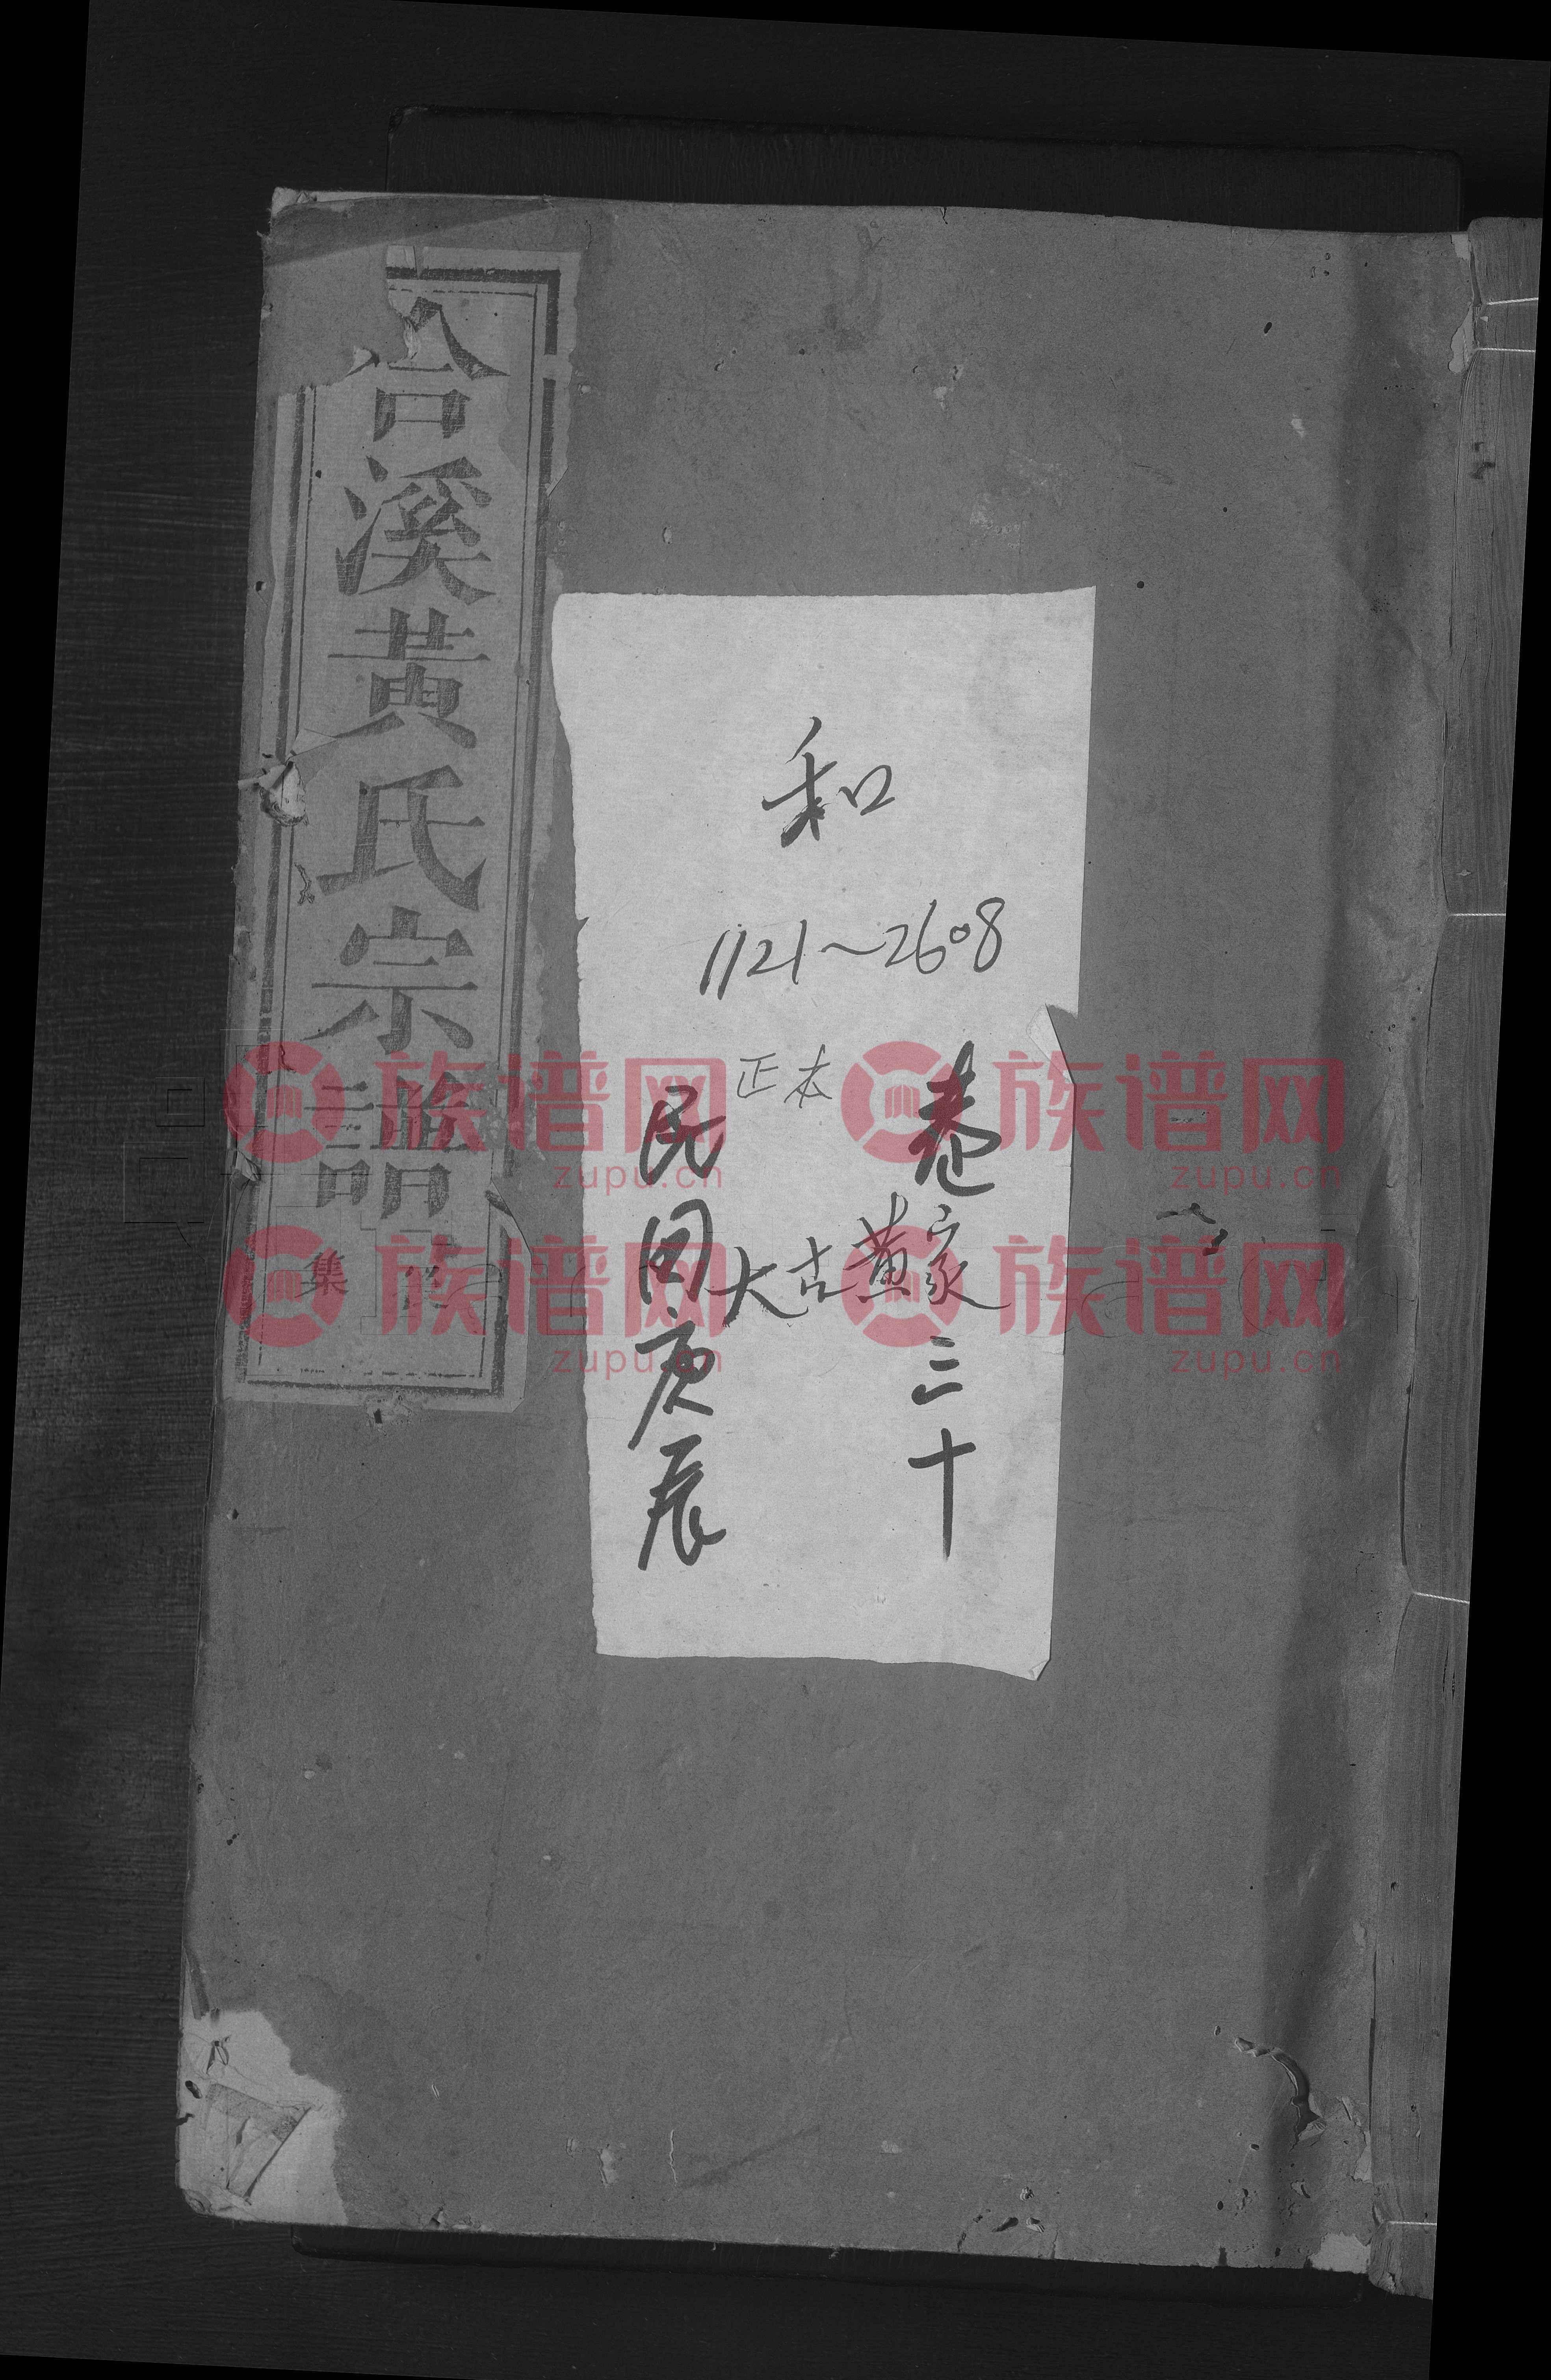 合溪黃氏宗譜
集
和
1121~2608
正本
卷三十
大古黄家
民国庚辰
族谱网
zupu.cn
族谱网
zupu.cn
族谱网
zupu.cn
族谱网
zupu.cn